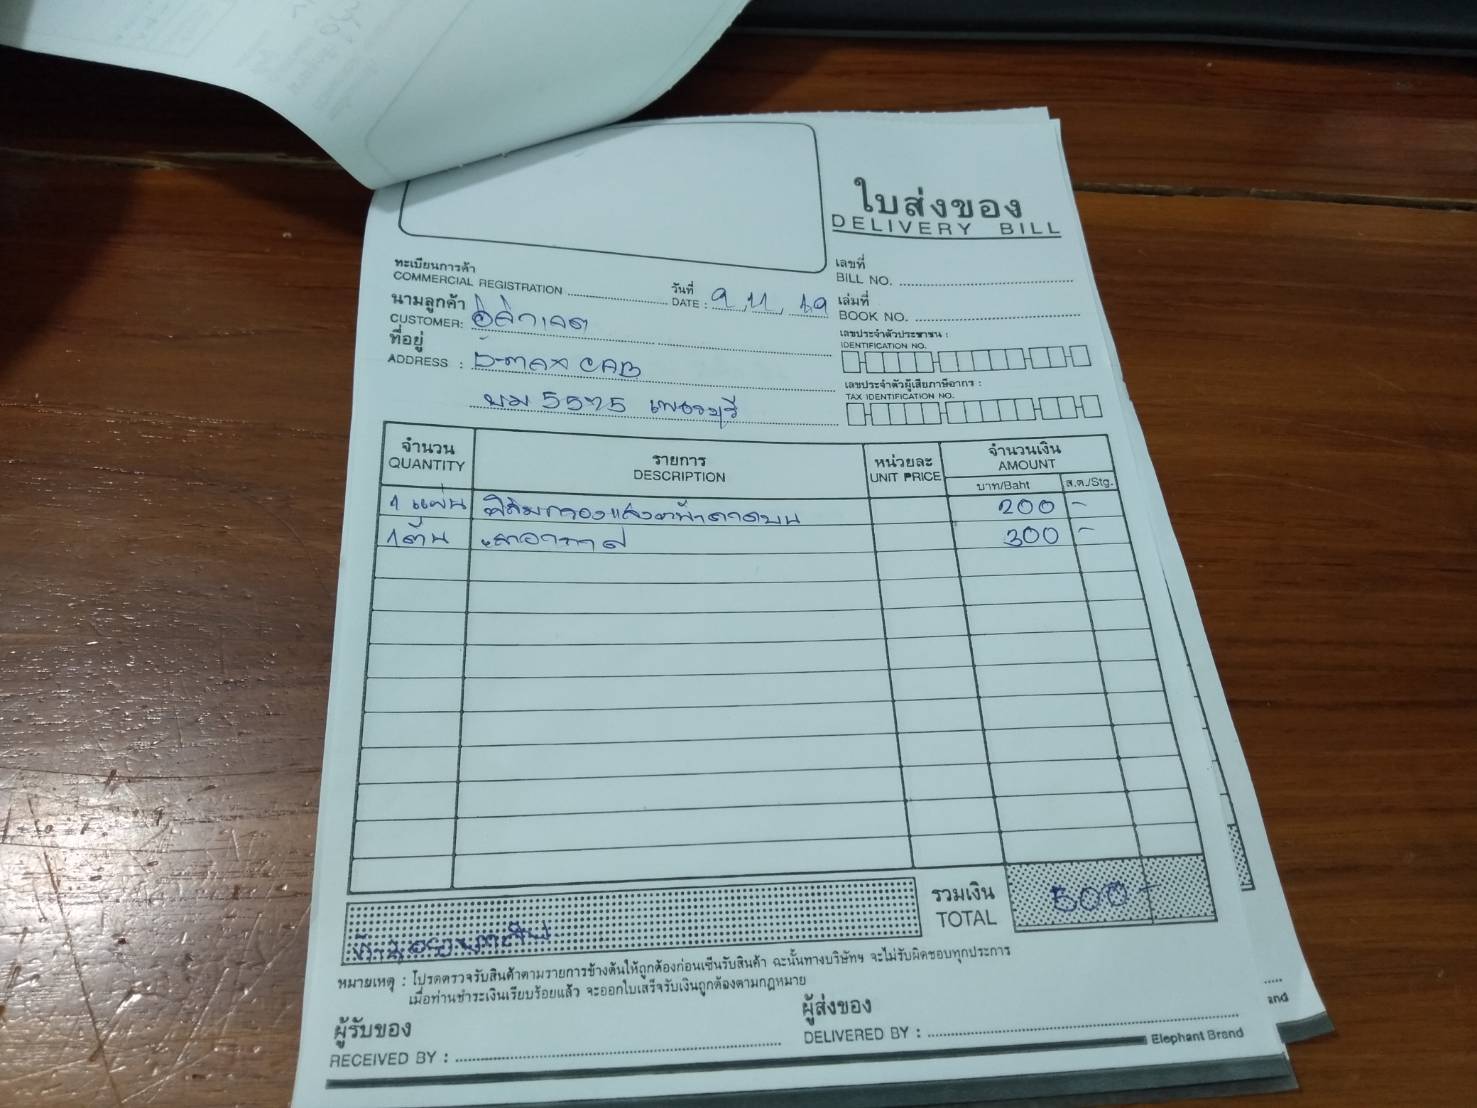 ใบส่งของ
DELIVERY BILL
ทะเบียนการค้า
COMMERCIAL REGISTRATION
วันที่
DATE : 9, 11, 19
เลขที่
BILL NO.
เล่มที่
BOOK NO.
นามลูกค้า
CUSTOMER:
ที่อยู่
ADDRESS : D-max CAB
บม 5575 เพชรบุรี
เลขประจำตัวประชาชน :
IDENTIFICATION NO.
เลขประจำตัวผู้เสียภาษีอากร :
TAX IDENTIFICATION NO.
จำนวน รายการ หน่วยละ จำนวนเงิน
QUANTITY DESCRIPTION UNIT PRICE AMOUNT
บาท/Baht ส.ต./Stg.
1 แผ่น ฟิล์มกรองแสงหน้าคาดบน 200 -
1 ต้น เสาอากาศ 300 -
รวมเงิน
TOTAL 500 -
หมายเหตุ : โปรดตรวจรับสินค้าตามรายการข้างต้นให้ถูกต้องก่อนเซ็นรับสินค้า ฉะนั้นทางบริษัทฯ จะไม่รับผิดชอบทุกประการ
เมื่อท่านชำระเงินเรียบร้อยแล้ว จะออกใบเสร็จรับเงินถูกต้องตามกฎหมาย
ผู้รับของ
RECEIVED BY :
ผู้ส่งของ
DELIVERED BY :
Elephant Brand